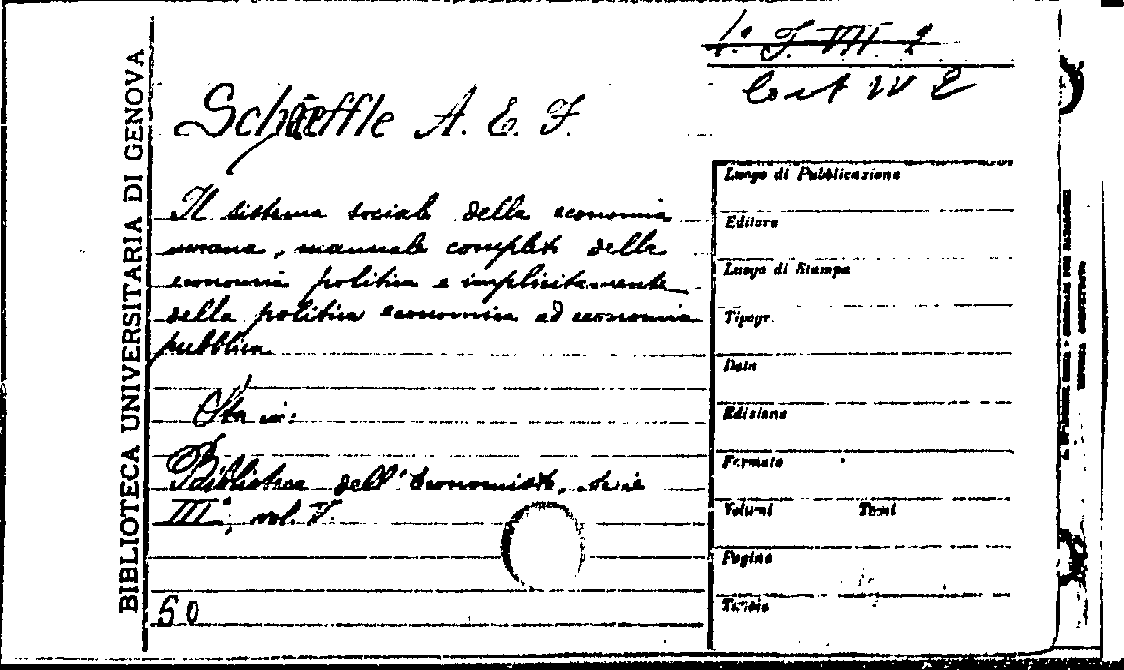 BIBLIOTECA UNIVERSITARIA DI GENOVA
Schäffle A. E. F.
Il sistema sociale della economia
umana, manuale completo della
economia politica e implicitamente
della politica economica ed economia
pubblica
Sta in:
Biblioteca dell'Economista, serie
IIIª, vol. V.
50
Luogo di Pubblicazione
Editore
Luogo di Stampa
Tipogr.
Data
Edizione
Formato
Volumi Tomi
Pagine
Tavole